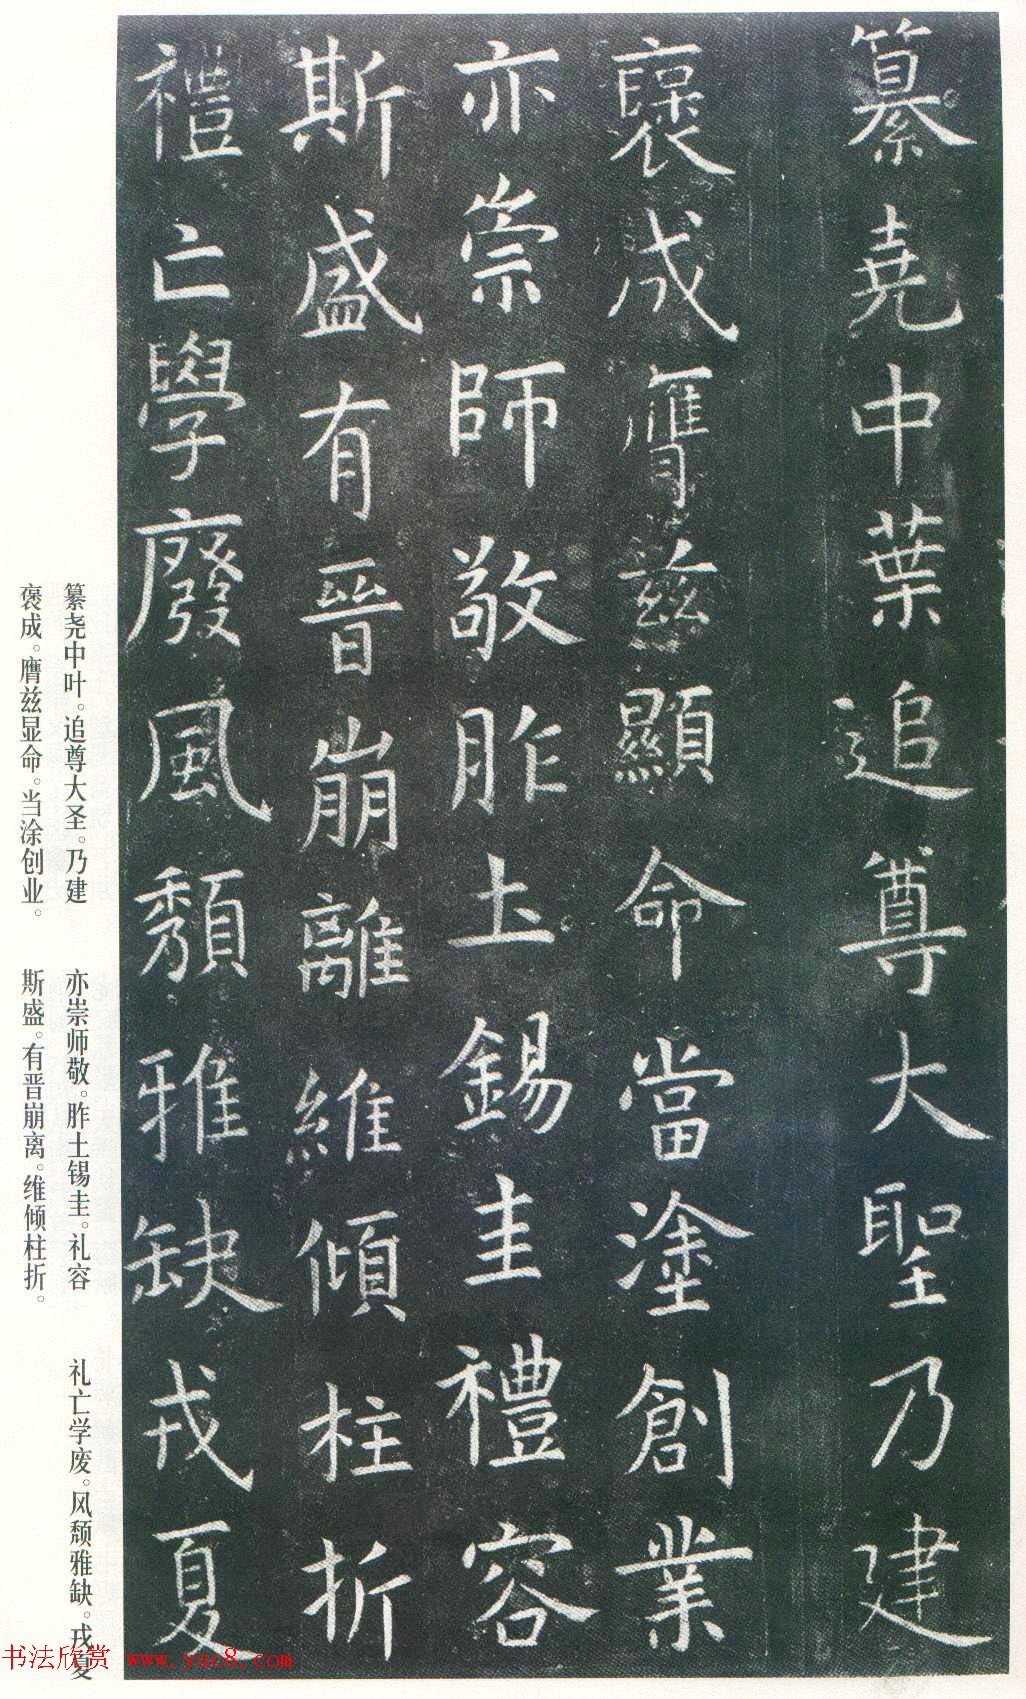 纂堯中葉追尊大聖乃建
襃成膺茲顯命當塗創業
亦崇師敬胙土錫圭禮容
斯盛有晉崩離維傾柱折
禮亡學廢風頽雅缺戎夏
纂尧中叶。追尊大圣。乃建
褒成。膺兹显命。当涂创业。
亦崇师敬。胙土锡圭。礼容
斯盛。有晋崩离。维倾柱折。
礼亡学废。风颓雅缺。戎夏
书法欣赏 www.yac8.com